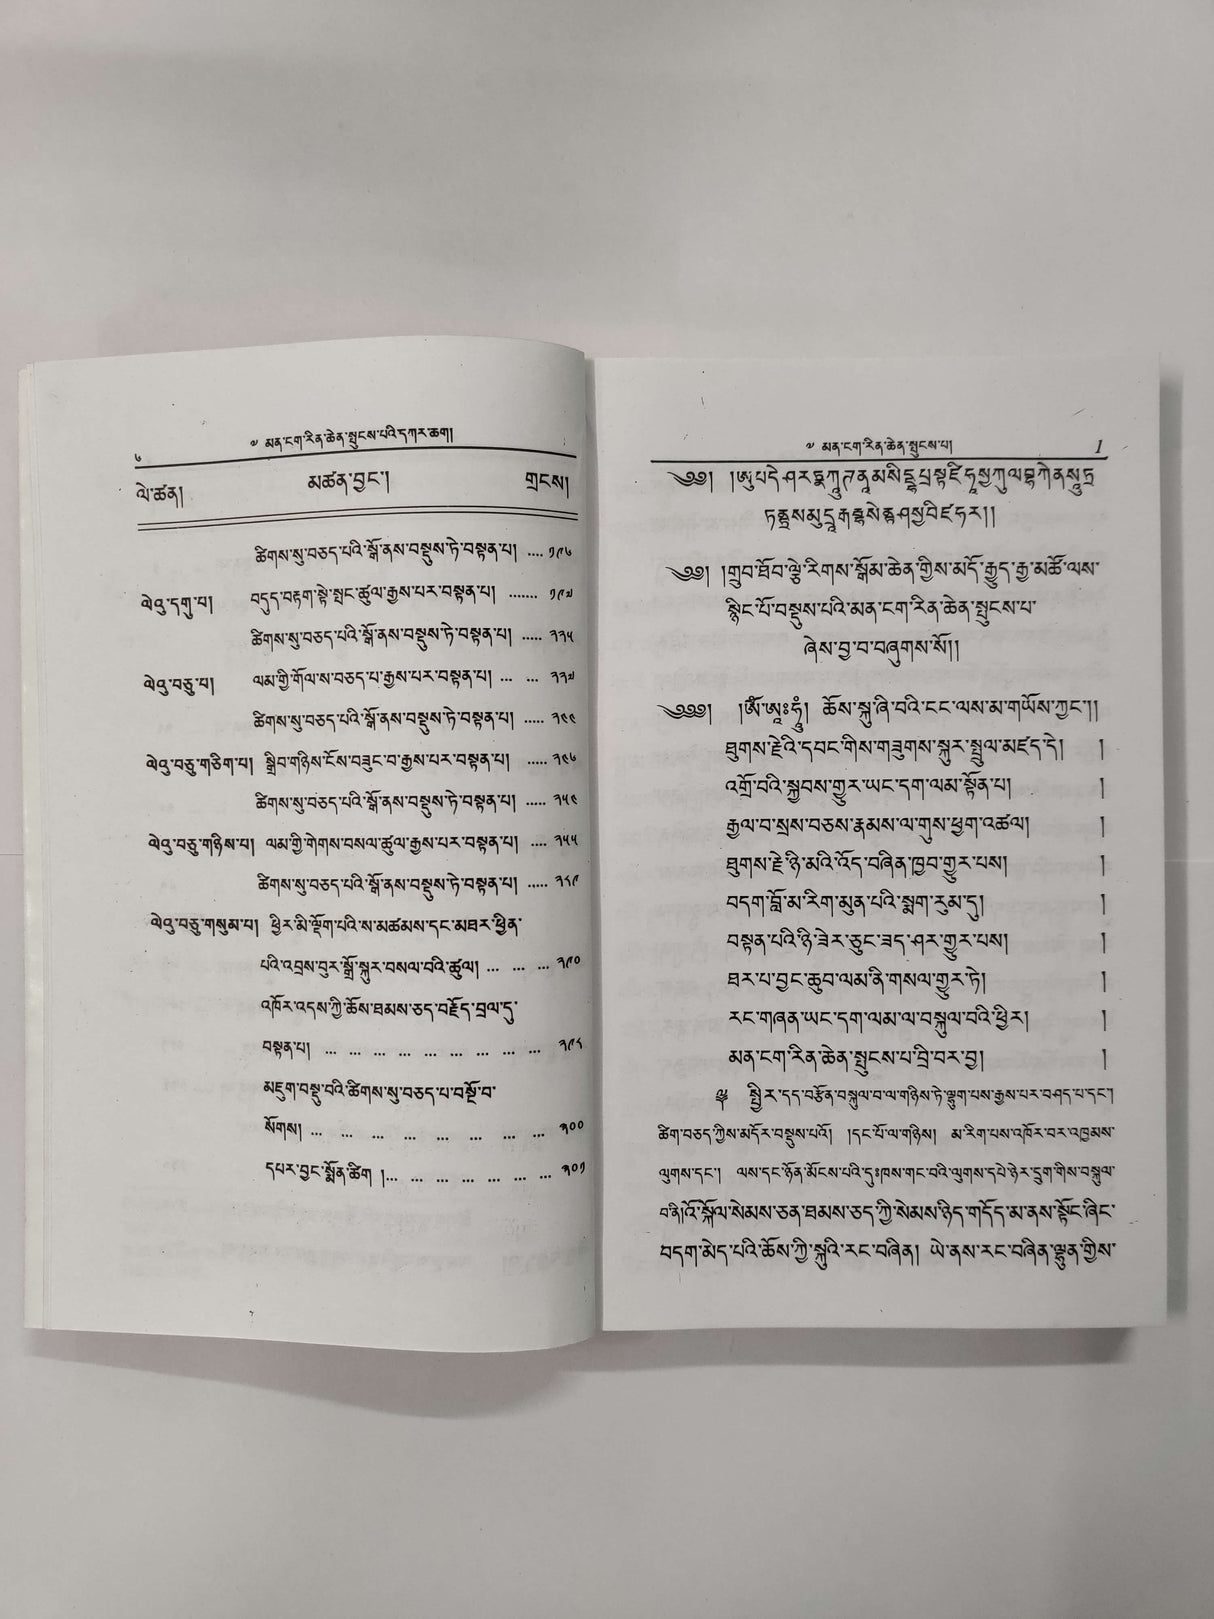 ༦
༄ མན་ངག་རིན་ཆེན་སྤུངས་པའི་དཀར་ཆག།
ལེ་ཚན། མཚན་བྱང་། གྲངས།
ཚིགས་སུ་བཅད་པའི་སྒོ་ནས་བསྡུས་ཏེ་བསྟན་པ། .... ༡༩༦
ལེའུ་དགུ་པ། བདུད་བརྟག་སྟེ་སྤང་ཚུལ་རྒྱས་པར་བསྟན་པ། ....... ༡༩༧
ཚིགས་སུ་བཅད་པའི་སྒོ་ནས་བསྡུས་ཏེ་བསྟན་པ། ..... ༢༢༥
ལེའུ་བཅུ་པ། ལམ་གྱི་གོལ་ས་བཅད་པ་རྒྱས་པར་བསྟན་པ། ... ... ༢༢༧
ཚིགས་སུ་བཅད་པའི་སྒོ་ནས་བསྡུས་ཏེ་བསྟན་པ། ..... ༢༤༤
ལེའུ་བཅུ་གཅིག་པ། སྒྲིབ་གཉིས་ངོས་བཟུང་བ་རྒྱས་པར་བསྟན་པ། ..... ༢༤༦
ཚིགས་སུ་བཅད་པའི་སྒོ་ནས་བསྡུས་ཏེ་བསྟན་པ། ..... ༢༥༤
ལེའུ་བཅུ་གཉིས་པ། ལམ་གྱི་གེགས་བསལ་ཚུལ་རྒྱས་པར་བསྟན་པ། .... ༢༥༥
ཚིགས་སུ་བཅད་པའི་སྒོ་ནས་བསྡུས་ཏེ་བསྟན་པ། ..... ༢༨༩
ལེའུ་བཅུ་གསུམ་པ། ཕྱིར་མི་ལྡོག་པའི་ས་མཚམས་དང་མཐར་ཕྱིན་
པའི་འབྲས་བུར་སྒྲོ་སྐུར་བསལ་བའི་ཚུལ། ... ... ... ༢༩༠
འཁོར་འདས་ཀྱི་ཆོས་ཐམས་ཅད་བརྗོད་བྲལ་དུ་
བསྟན་པ། ... ... ... ... ... ... ... ... ... ༢༩༨
མཇུག་བསྡུ་བའི་ཚིགས་སུ་བཅད་པ་བསྔོ་བ་
སོགས། ... ... ... ... ... ... ... ... ༣༠༠
དཔར་བྱང་སྨོན་ཚིག །... ... ... ... ... ... ... ༣༠༡
༄ མན་ངག་རིན་ཆེན་སྤུངས་པ།
1
༄༅། །གྲུབ་ཐོབ་ལྕེ་རིགས་སྒོམ་ཆེན་གྱིས་མདོ་རྒྱུད་རྒྱ་མཚོ་ལས་
སྙིང་པོ་བསྡུས་པའི་མན་ངག་རིན་ཆེན་སྤུངས་པ་
ཞེས་བྱ་བ་བཞུགས་སོ།།
༄༅༅། །ༀ་ཨཱཿཧཱུྃ། ཆོས་སྐུ་ཞི་བའི་ངང་ལས་མ་གཡོས་ཀྱང་།།
ཐུགས་རྗེའི་དབང་གིས་གཟུགས་སྐུར་སྤྲུལ་མཛད་དེ། །
འགྲོ་བའི་སྐྱབས་གྱུར་ཡང་དག་ལམ་སྟོན་པ། །
རྒྱལ་བ་སྲས་བཅས་རྣམས་ལ་གུས་ཕྱག་འཚལ། །
ཐུགས་རྗེ་ཉི་མའི་འོད་བཞིན་ཁྱབ་གྱུར་པས། །
བདག་བློ་མ་རིག་མུན་པའི་སྨག་རུམ་དུ། །
བསྟན་པའི་ཉི་ཟེར་ཅུང་ཟད་ཤར་གྱུར་པས། །
ཐར་པ་བྱང་ཆུབ་ལམ་ནི་གསལ་གྱུར་ཏེ། །
རང་གཞན་ཡང་དག་ལམ་ལ་བསྐུལ་བའི་ཕྱིར། །
མན་ངག་རིན་ཆེན་སྤུངས་པ་བྲི་བར་བྱ། །
སྤྱིར་དད་བརྩོན་བསྐུལ་བ་ལ་གཉིས་ཏེ་ལྷུག་པས་རྒྱས་པར་བཤད་པ་དང་།
ཚིག་བཅད་ཀྱིས་མདོར་བསྡུས་པའོ། །དང་པོ་ལ་གཉིས། མ་རིག་པས་འཁོར་བར་འཁྱམས་
ལུགས་དང་། ལས་དང་ཉོན་མོངས་པའི་དུཿཁས་གང་བའི་ལུགས་དཔེ་ཉེར་དྲུག་གིས་བསྐུལ་
བ་ནི།འོ་སྐོལ་སེམས་ཅན་ཐམས་ཅད་ཀྱི་སེམས་ཉིད་གདོད་མ་ནས་སྟོང་ཞིང་
བདག་མེད་པའི་ཆོས་ཀྱི་སྐུའི་རང་བཞིན། ཡེ་ནས་རང་བཞིན་ལྷུན་གྱིས་